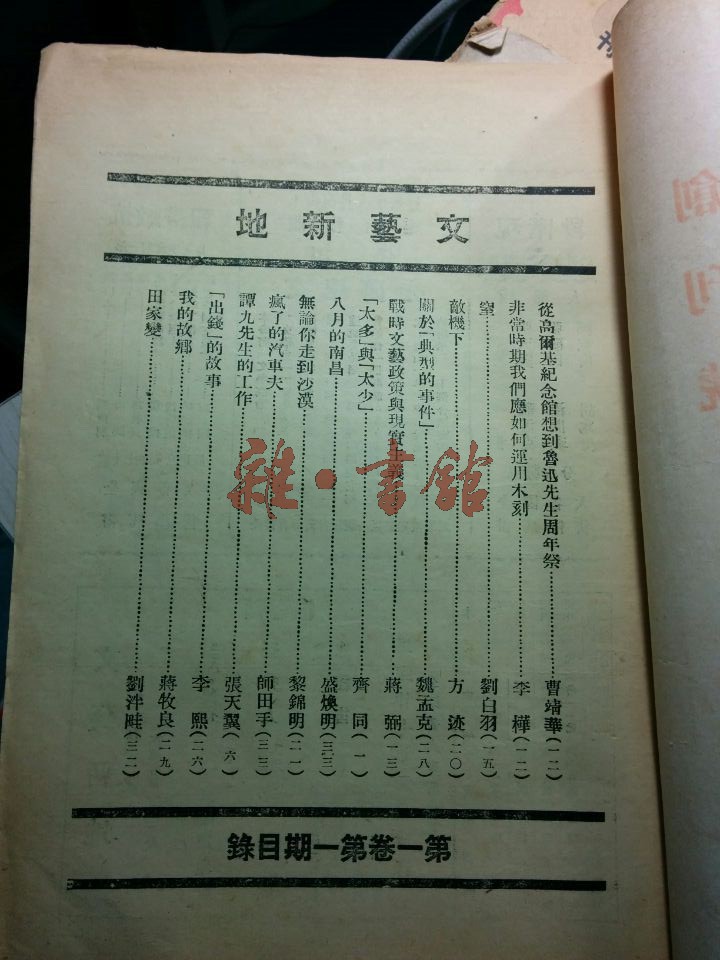 文藝新地
從高爾基紀念館想到魯迅先生周年祭……曹靖華(一二)
非常時期我們應如何運用木刻……李樺(一二)
窒……劉白羽(一五)
敵機下……方迹(二〇)
關於「典型的事件」……魏孟克(二八)
戰時文藝政策與現實主義……蔣弼(一三)
「太多」與「太少」……齊同(一)
八月的南昌……盛煥明(三三)
無論你走到沙漠……黎錦明(二一)
瘋了的汽車夫……師田手(二三)
譚九先生的工作……張天翼(六)
「出錢」的故事……李熙(二六)
我的故鄉……蔣牧良(二九)
田家變……劉泮畦(三二)
第一卷第一期目錄
雜·書館
創刊